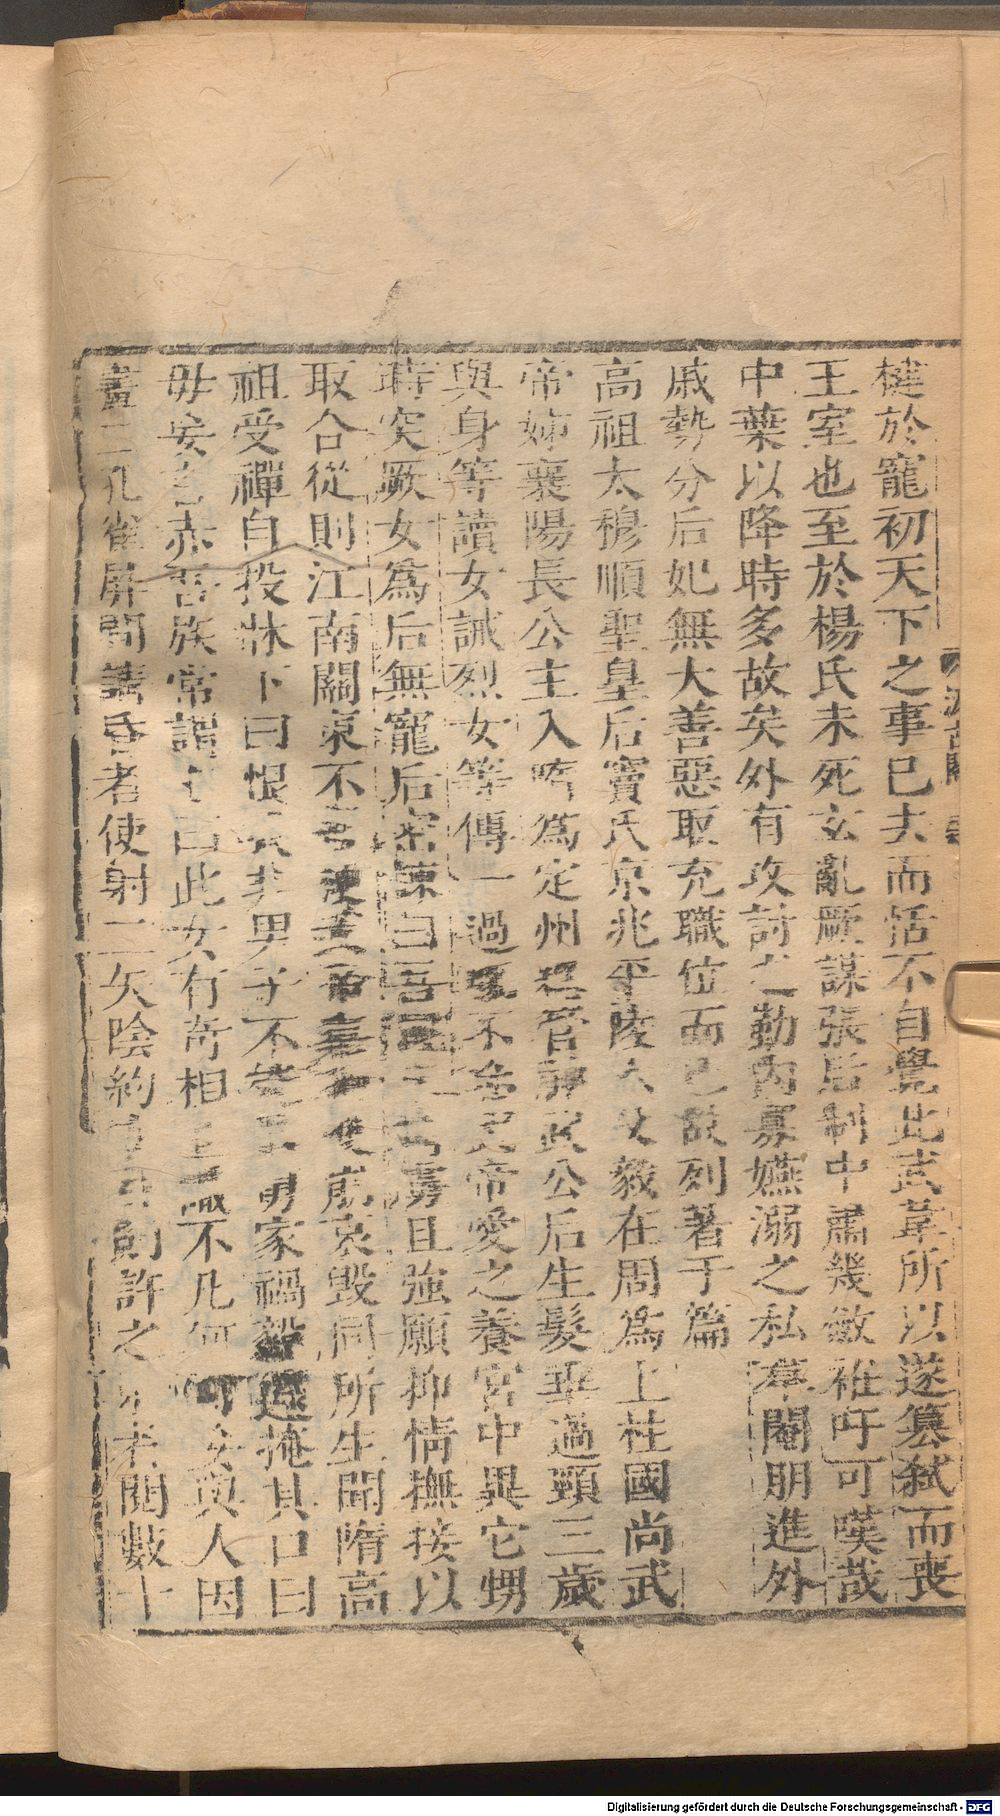 楗於寵初天下之事已去而恬不自覺此武韋所以遂簒弑而喪
王室也至於楊氏未死玄亂厥謀張后制中肅幾斂衽吁可嘆哉
中葉以降時多故矣外有攻討之勤內寡嬿溺之私羣閹朋進外
戚勢分后妃無大善惡取充職位而已故列著于篇
高祖太穆順聖皇后竇氏京兆平陵人父毅在周爲上柱國尚武
帝姊襄陽長公主入隋爲定州總管神武公后生髮垂過頸三歲
與身等讀女誡烈女等傳一過輒不忘武帝愛之養宮中異它甥
時突厥女爲后無寵后密諫曰吾國未靖虜且強願抑情撫接以
取合從則江南關東不吾梗武帝嘉納及崩哀毀同所生聞隋高
祖受禪自投牀下曰恨我非男子不能救舅家禍毅遽掩其口曰
毋妄言赤吾族常謂主曰此女有奇相且識不凡何可妄與人因
畫二孔雀屏間請昏者使射二矢陰約中目則許之射者閱數十
汲古閣
Digitalisierung gefördert durch die Deutsche Forschungsgemeinschaft - DFG